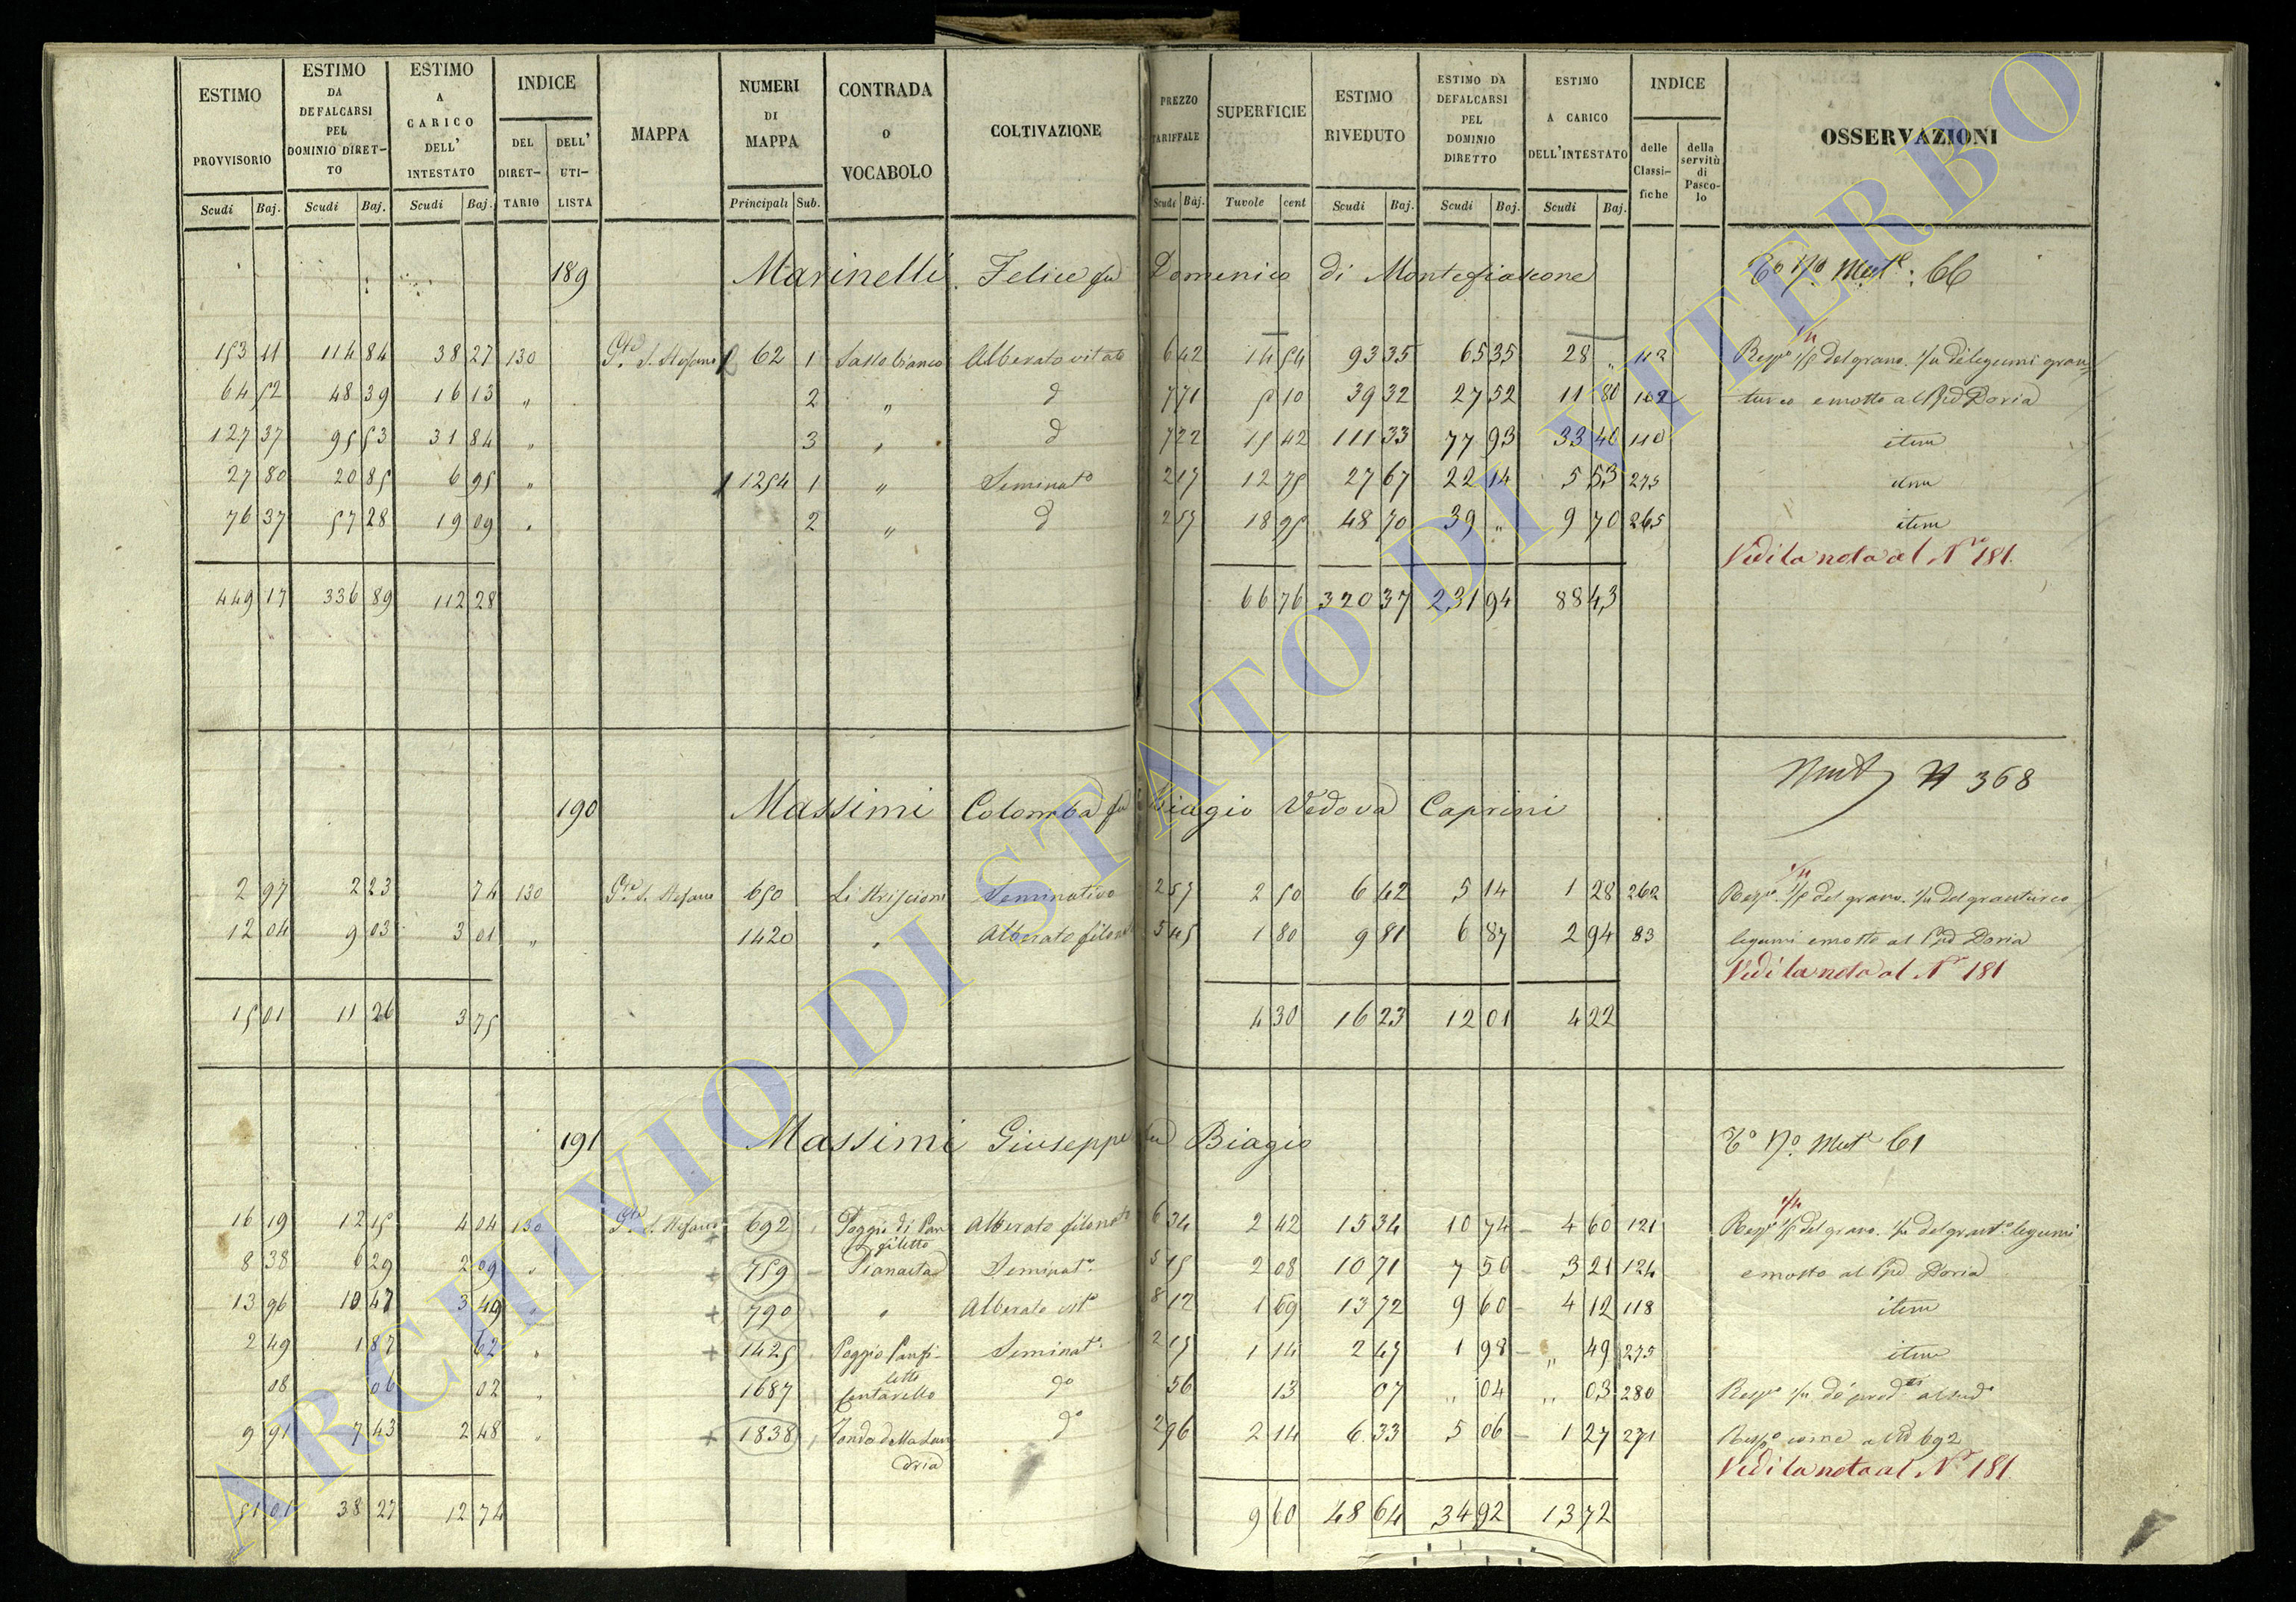 ESTIMO PROVVISORIO Scudi Baj. ESTIMO DA DEFALCARSI PEL DOMINIO DIRET-TO Scudi Baj. ESTIMO A CARICO DELL' INTESTATO Scudi Baj. INDICE DEL DIRET-TARIO DELL' UTI-LISTA MAPPA NUMERI DI MAPPA Principali Sub. CONTRADA o VOCABOLO COLTIVAZIONE PREZZO TARIFFALE Scudi Baj. SUPERFICIE Tavole cent ESTIMO RIVEDUTO Scudi Baj. ESTIMO DA DEFALCARSI PEL DOMINIO DIRETTO Scudi Baj. ESTIMO A CARICO DELL'INTESTATO Scudi Baj. INDICE delle Classi-fiche della servitù di Pasco-lo OSSERVAZIONI
189 Marinelli Felice fu Domenico di Montefiascone 66
153 11 114 84 38 27 130 S. Stefano 62 1 Sasso bianco Alberato vitato 6 42 14 54 93 35 65 35 28 „ 112 del grano
64 52 48 39 16 13 „ 2 „ d 7 71 5 10 39 32 27 52 11 80 102 turco e mosto al Doria
127 37 95 53 31 84 „ 3 „ d 7 22 15 42 111 33 77 93 33 40 110 item
27 80 20 85 6 95 „ 1254 1 „ Seminato 2 17 12 75 27 67 22 14 5 53 275 item
76 37 57 28 19 09 „ 2 „ d 2 57 18 95 48 70 39 „ 9 70 265 item
Vedi la nota al N° 181.
449 17 336 89 112 28 66 76 320 37 231 94 88 43
190 Massimi Colomba fu Biagio Vedova Caprini N 368
2 97 2 23 74 130 S. Stefano 650 Seminativo 2 57 2 50 6 42 5 14 1 28 262 del grano del granturco
12 04 9 03 3 01 „ 1420 „ Alberato filonato 5 45 1 80 9 81 6 87 2 94 83 legumi e mosto al Doria
Vedi la nota al N° 181
15 01 11 26 3 75 4 30 16 23 12 01 4 22
191 Massimi Giuseppe fu Biagio 61
16 19 12 15 4 04 130 S. Stefano 692 Poggio di Pan Alberato filonato 6 34 2 42 15 34 10 74 4 60 121 del grano legumi
filetto
8 38 6 29 2 09 „ 759 Seminat° 5 15 2 08 10 71 7 50 3 21 124 e mosto al Doria
13 96 10 47 3 49 „ 790 „ Alberato vit° 8 12 1 69 13 72 9 60 4 12 118 item
2 49 1 87 62 „ 1425 Poggio Panfi- Seminat° 2 15 1 14 2 45 1 98 „ 49 275 item
letto
08 06 02 „ 1687 Centarello d° 56 13 07 „ 04 „ 03 280
9 91 7 43 2 48 „ 1838 d° 2 96 2 14 6 33 5 06 1 27 271 come al 692
Vedi la nota al N° 181
51 01 38 27 12 74 9 60 48 64 34 92 13 72
ARCHIVIO DI STATO DI VITERBO